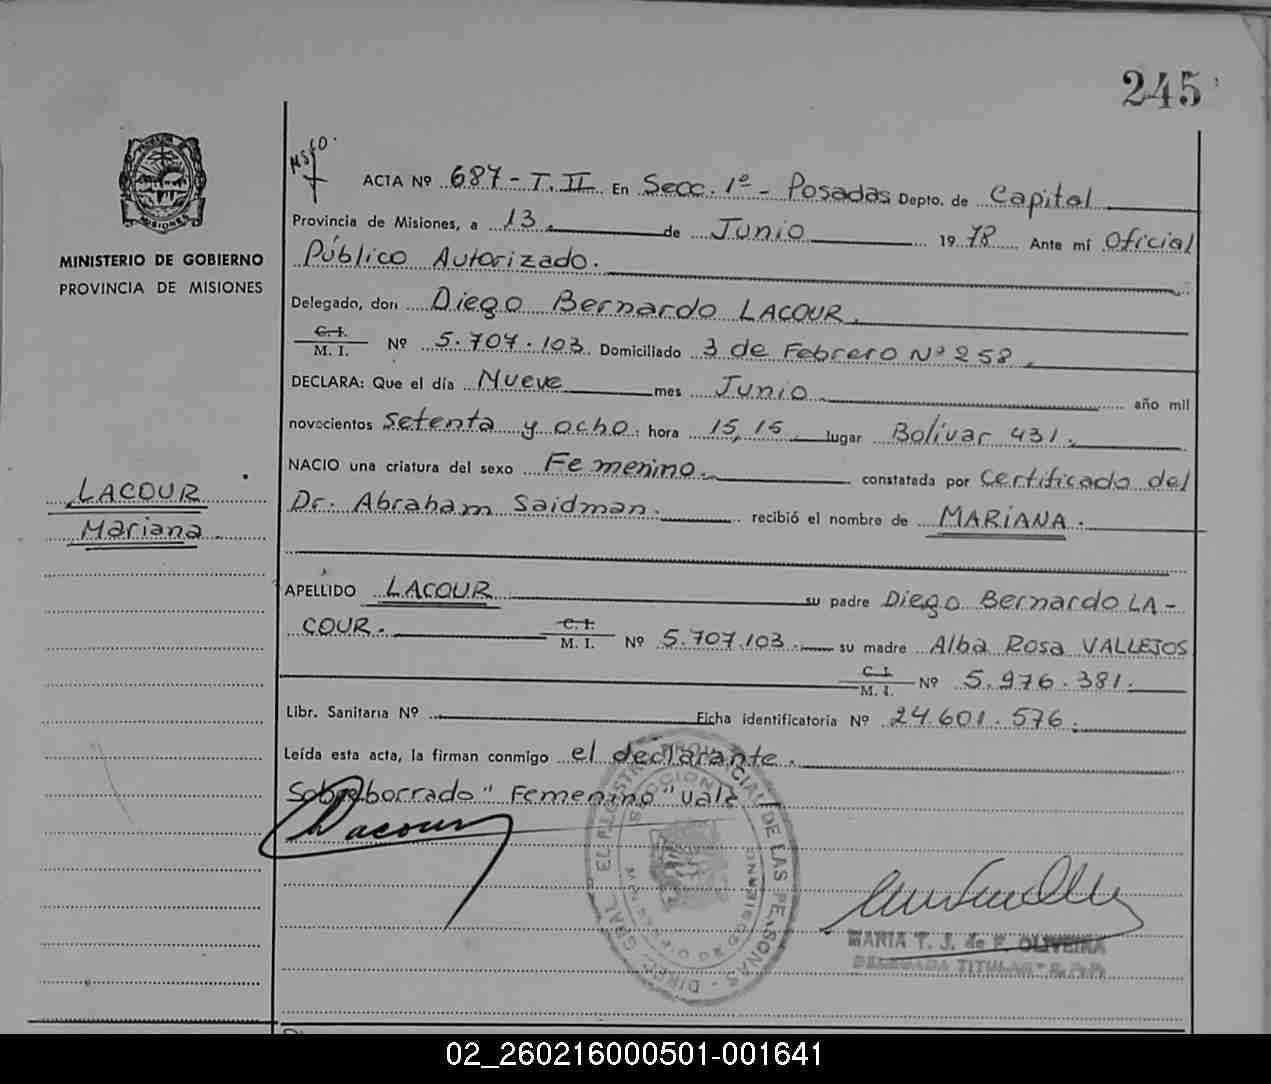 245
ACTA Nº 687 - T. II En Secc. 1º - Posadas Depto. de Capital
Provincia de Misiones, a 13 de Junio 1978 Ante mí Oficial
Público Autorizado.
MINISTERIO DE GOBIERNO
PROVINCIA DE MISIONES
Delegado, don Diego Bernardo LACOUR.
C. I.
M. I. Nº 5.707.103 Domiciliado 3 de Febrero Nº 258.
DECLARA: Que el día Nueve mes Junio año mil
novecientos setenta y ocho. hora 15,15 lugar Bolívar 431.
NACIO una criatura del sexo Femenino. constatada por Certificado del
Dr. Abraham Saidman. recibió el nombre de MARIANA.
LACOUR
Mariana.
APELLIDO LACOUR su padre Diego Bernardo LA-
COUR. C. I. M. I. Nº 5.707.103. su madre Alba Rosa VALLEJOS
C. I.
M. I. Nº 5.976.381.
Libr. Sanitaria Nº Ficha identificatoria Nº 24.601.576.
Leída esta acta, la firman conmigo el declarante.
Sobreborrado "Femenino" vale
Lacour
MARIA T. J. de F. OLIVEIRA
DELEGADA TITULAR
02_260216000501-001641